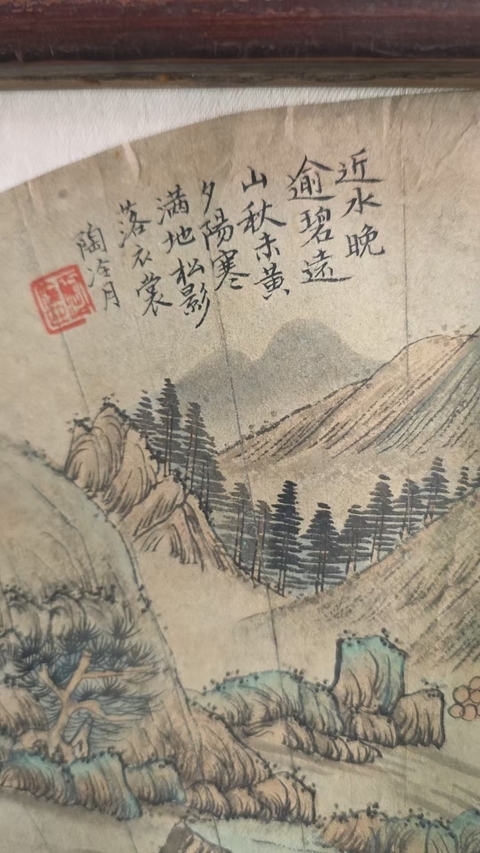 近水晚
逾碧遠
山秋未黃
夕陽寒
满地松影
落衣裳
陶冷月